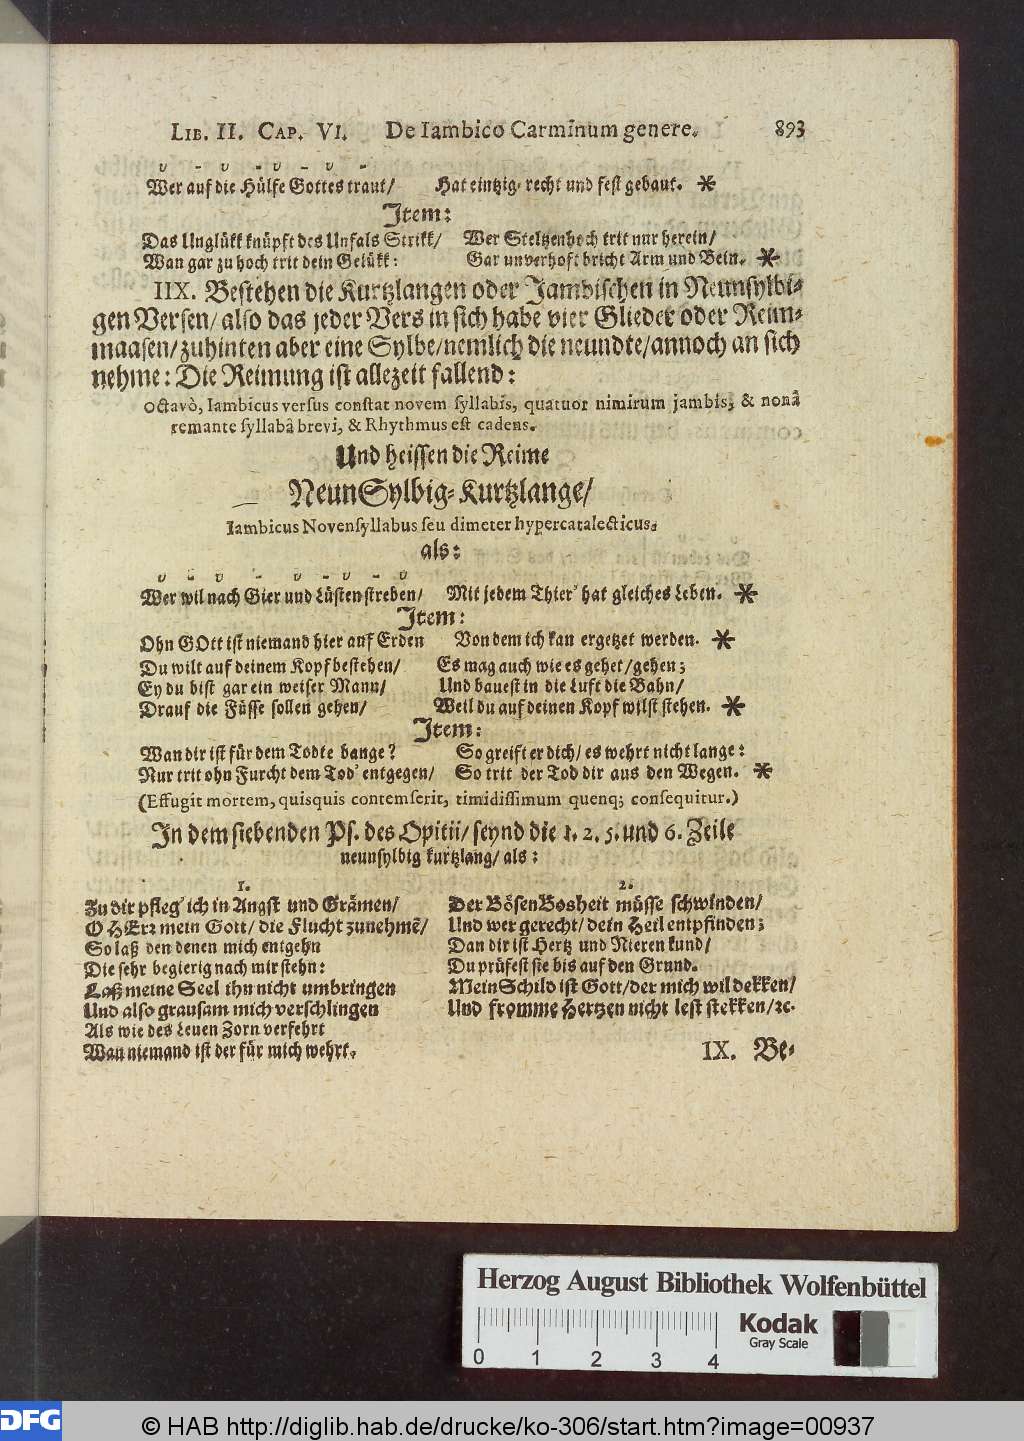 LIB. II. CAP. VI. De Iambico Carminum genere. 893
Wer auf die Hülfe Gottes traut/ Hat eintzig-recht und fest gebaut. *
Item:
Das Unglükk knüpft des Unfals Strikk/ Wer Steltzenhoch trit nur herein/
Wan gar zu hoch trit dein Gelükk: Gar unverhoft bricht Arm und Bein. *
IIX. Bestehen die Kurtzlangen oder Jambischen in Neunsylbi-
gen Versen/ also das jeder Vers in sich habe vier Glieder oder Reim-
maasen/ zuhinten aber eine Sylbe/ nemlich die neundte/ annoch an sich
nehme: Die Reimung ist allezeit fallend:
Octavò, Iambicus versus constat novem syllabis, quatuor nimirum jambis, & nonâ
remante syllabâ brevi, & Rhythmus est cadens.
Und heissen die Reime
NeunSylbig-Kurtzlange/
Iambicus Novensyllabus seu dimeter hypercatalecticus.
als:
Wer wil nach Gier und Lüsten streben/ Mit jedem Thier' hat gleiches Leben. *
Item:
Ohn GOtt ist niemand hier auf Erden Von dem ich kan ergetzet werden. *
Du wilt auf deinem Kopf bestehen/ Es mag auch wie es gehet/ gehen;
Ey du bist gar ein weiser Mann/ Und bauest in die Luft die Bahn/
Drauf die Füsse sollen gehen/ Weil du auf deinen Kopf wilst stehen. *
Item:
Wan dir ist für dem Todte bange? So greift er dich/ es wehrt nicht lange:
Nur trit ohn Furcht dem Tod' entgegen/ So trit der Tod dir aus den Wegen. *
(Effugit mortem, quisquis contemserit, timidissimum quenq; consequitur.)
In dem siebenden Ps. des Opitii/ seynd die 1. 2. 5. und 6. Zeile
neunsylbig kurtzlang/ als:
1.
Zu dir pfleg' ich in Angst und Grämen/
O HErz mein Gott/ die Flucht zunehmẽ/
So laß den denen mich entgehn
Die sehr begierig nach mir stehn:
Laß meine Seel ihn nicht umbringen
Und also grausam mich verschlingen
Als wie des Leuen Zorn verfehrt
Wan niemand ist der für mich wehrt.
2.
Der Bösen Bosheit müsse schwinden/
Und wer gerecht/ dein Heil entpfinden;
Dan dir ist Hertz und Nieren kund/
Du prüfest sie bis auf den Grund.
Mein Schild ist Gott/ der mich wil dekken/
Und fromme Hertzen nicht lest stekken/ ꝛc.
IX. Be-
Herzog August Bibliothek Wolfenbüttel
0 1 2 3 4
Kodak
Gray Scale
DFG
© HAB http://diglib.hab.de/drucke/ko-306/start.htm?image=00937